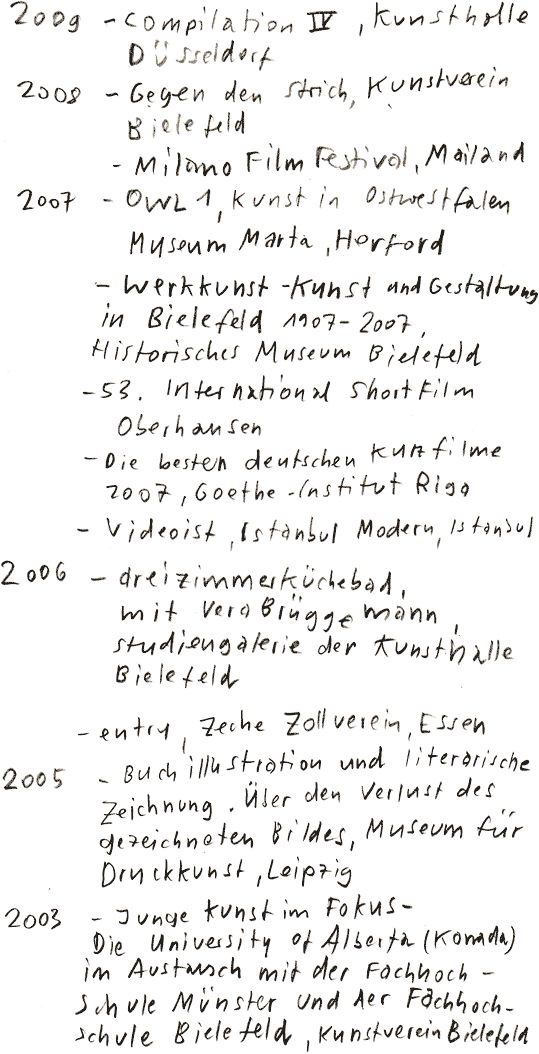 2009 - Compilation IV, Kunsthalle
Düsseldorf
2008 - Gegen den Strich, Kunstverein
Bielefeld
- Milano Film Festival, Mailand
2007 - OWL 1, Kunst in Ostwestfalen
Museum Marta, Herford
- Werkkunst - Kunst und Gestaltung
in Bielefeld 1907-2007,
Historisches Museum Bielefeld
- 53. International Shortfilm
Oberhausen
- Die besten deutschen Kurzfilme
2007, Goethe-Institut Riga
- Videoist, Istanbul Modern, Istanbul
2006 - dreizimmerküchebad,
mit Vera Brüggemann,
studiengalerie der Kunsthalle
Bielefeld
- entry, Zeche Zollverein, Essen
2005 - Buchillustration und literarische
Zeichnung. Über den Verlust des
gezeichneten Bildes, Museum für
Druckkunst, Leipzig
2003 - Junge Kunst im Fokus -
Die University of Alberta (Kanada)
im Austausch mit der Fachhoch-
schule Münster und der Fachhoch-
schule Bielefeld, Kunstverein Bielefeld